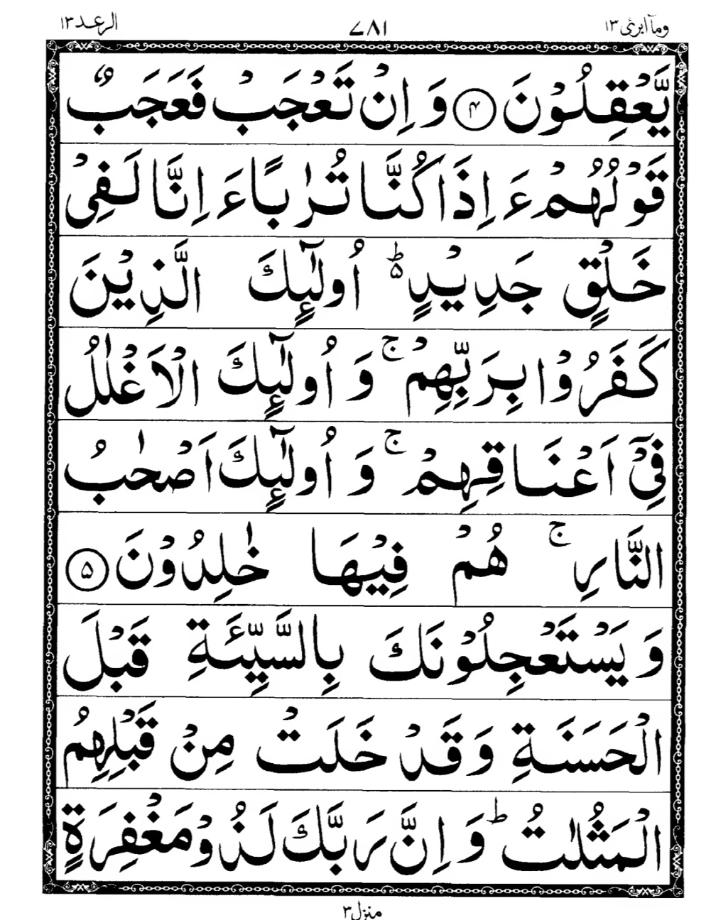 الرعد ١٣ ٧٨١ وما ابرئ ١٣
يَّعْقِلُوْنَ ﴿۴﴾ وَ اِنْ تَعْجَبْ فَعَجَبٌ
قَوْلُهُمْ ءَ اِذَا كُنَّا تُرٰبًا ءَ اِنَّا لَفِيْ
خَلْقٍ جَدِيْدٍ ۬ؕ اُولٰٓئِكَ الَّذِيْنَ
كَفَرُوْا بِرَبِّهِمْ ۚ وَ اُولٰٓئِكَ الْاَغْلٰلُ
فِيْۤ اَعْنَاقِهِمْ ۚ وَ اُولٰٓئِكَ اَصْحٰبُ
النَّارِ ۚ هُمْ فِيْهَا خٰلِدُوْنَ ﴿۵﴾
وَ يَسْتَعْجِلُوْنَكَ بِالسَّيِّئَةِ قَبْلَ
الْحَسَنَةِ وَ قَدْ خَلَتْ مِنْ قَبْلِهِمُ
الْمَثُلٰتُ ؕ وَ اِنَّ رَبَّكَ لَذُوْ مَغْفِرَةٍ
منزل ٣